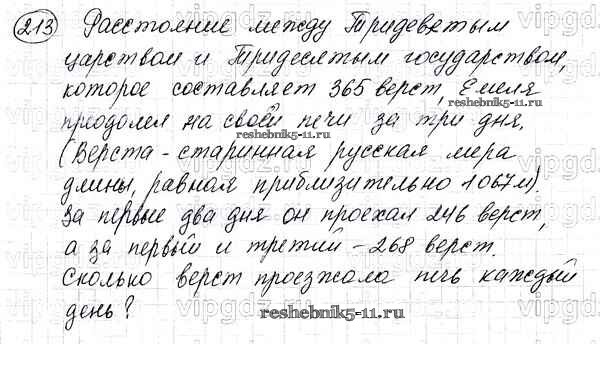 213 Расстояние между Тридевятым
царством и Тридесятым государством,
которое составляет 365 верст, Емеля
преодолел на своей печи за три дня.
(Верста - старинная русская мера
длины, равная приблизительно 1067м).
За первые два дня он проехал 246 верст,
а за первый и третий - 268 верст.
Сколько верст проезжала печь каждый
день?
reshebnik5-11.ru
reshebnik5-11.ru
reshebnik5-11.ru
reshebnik5-11.ru